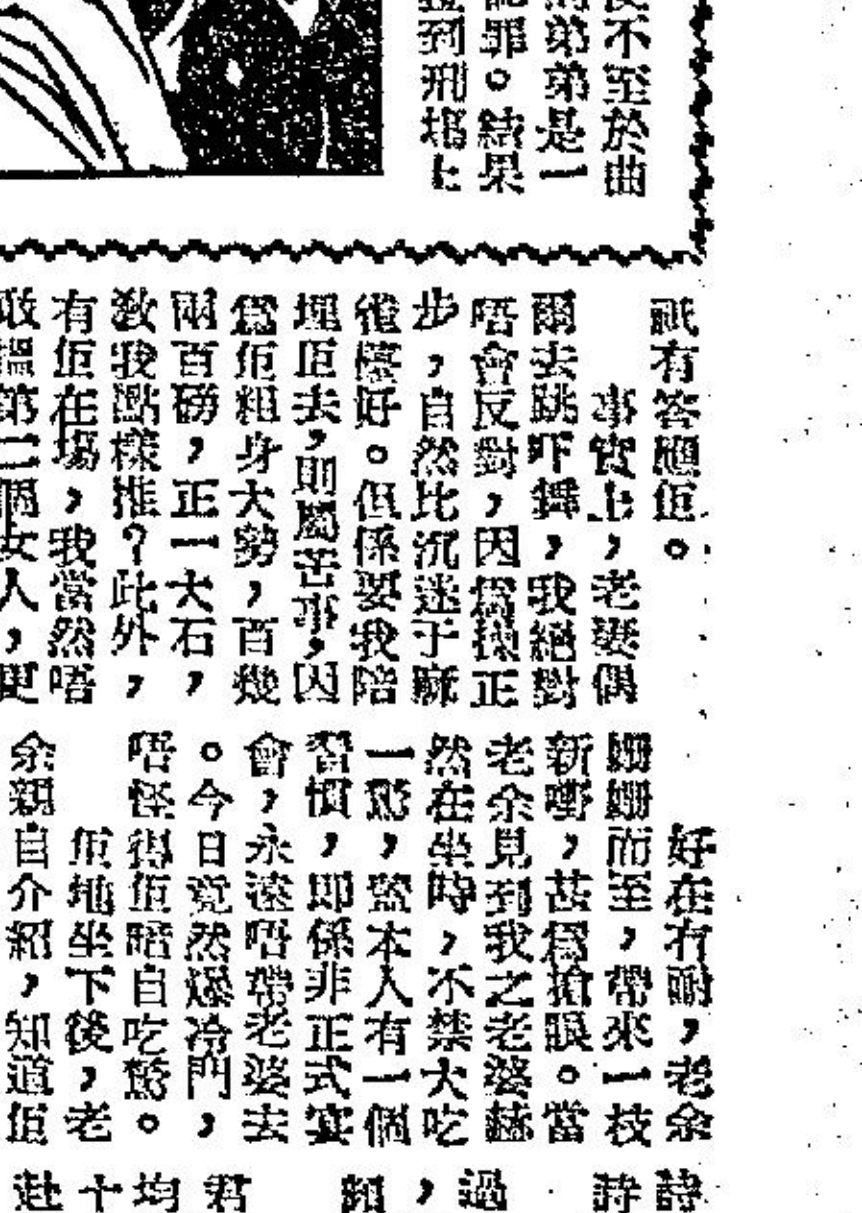 不至於曲
弟弟是一
罪。結果
到刑場上
祇有答應佢。
事實上,老婆偶
爾去跳吓舞,我絕對
唔會反對,因爲換正
步,自然比沉迷于麻
雀檯好。但係要我陪
埋佢去,則屬苦事,因
爲佢粗身大勢,百幾
兩百磅,正一大石,
教我點樣推?此外,
有佢在場,我當然唔
敢搵第二個女人,更
好在冇耐,老余
姍姍而至,帶來一枝
新嘢,甚爲搶眼。當
老余見到我之老婆赫
然在坐時,不禁大吃
一驚,監本人有一個
習慣,即係非正式宴
會,永遠唔帶老婆去
。今日竟然爆冷門,
唔怪得佢暗自吃驚。
佢地坐下後,老
余親自介紹,知道佢
詩
詩
過
,
頗
君
均
十
赴